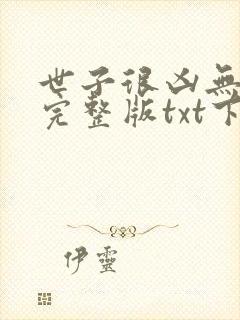 世子很凶無
完整版txt下
伊靈